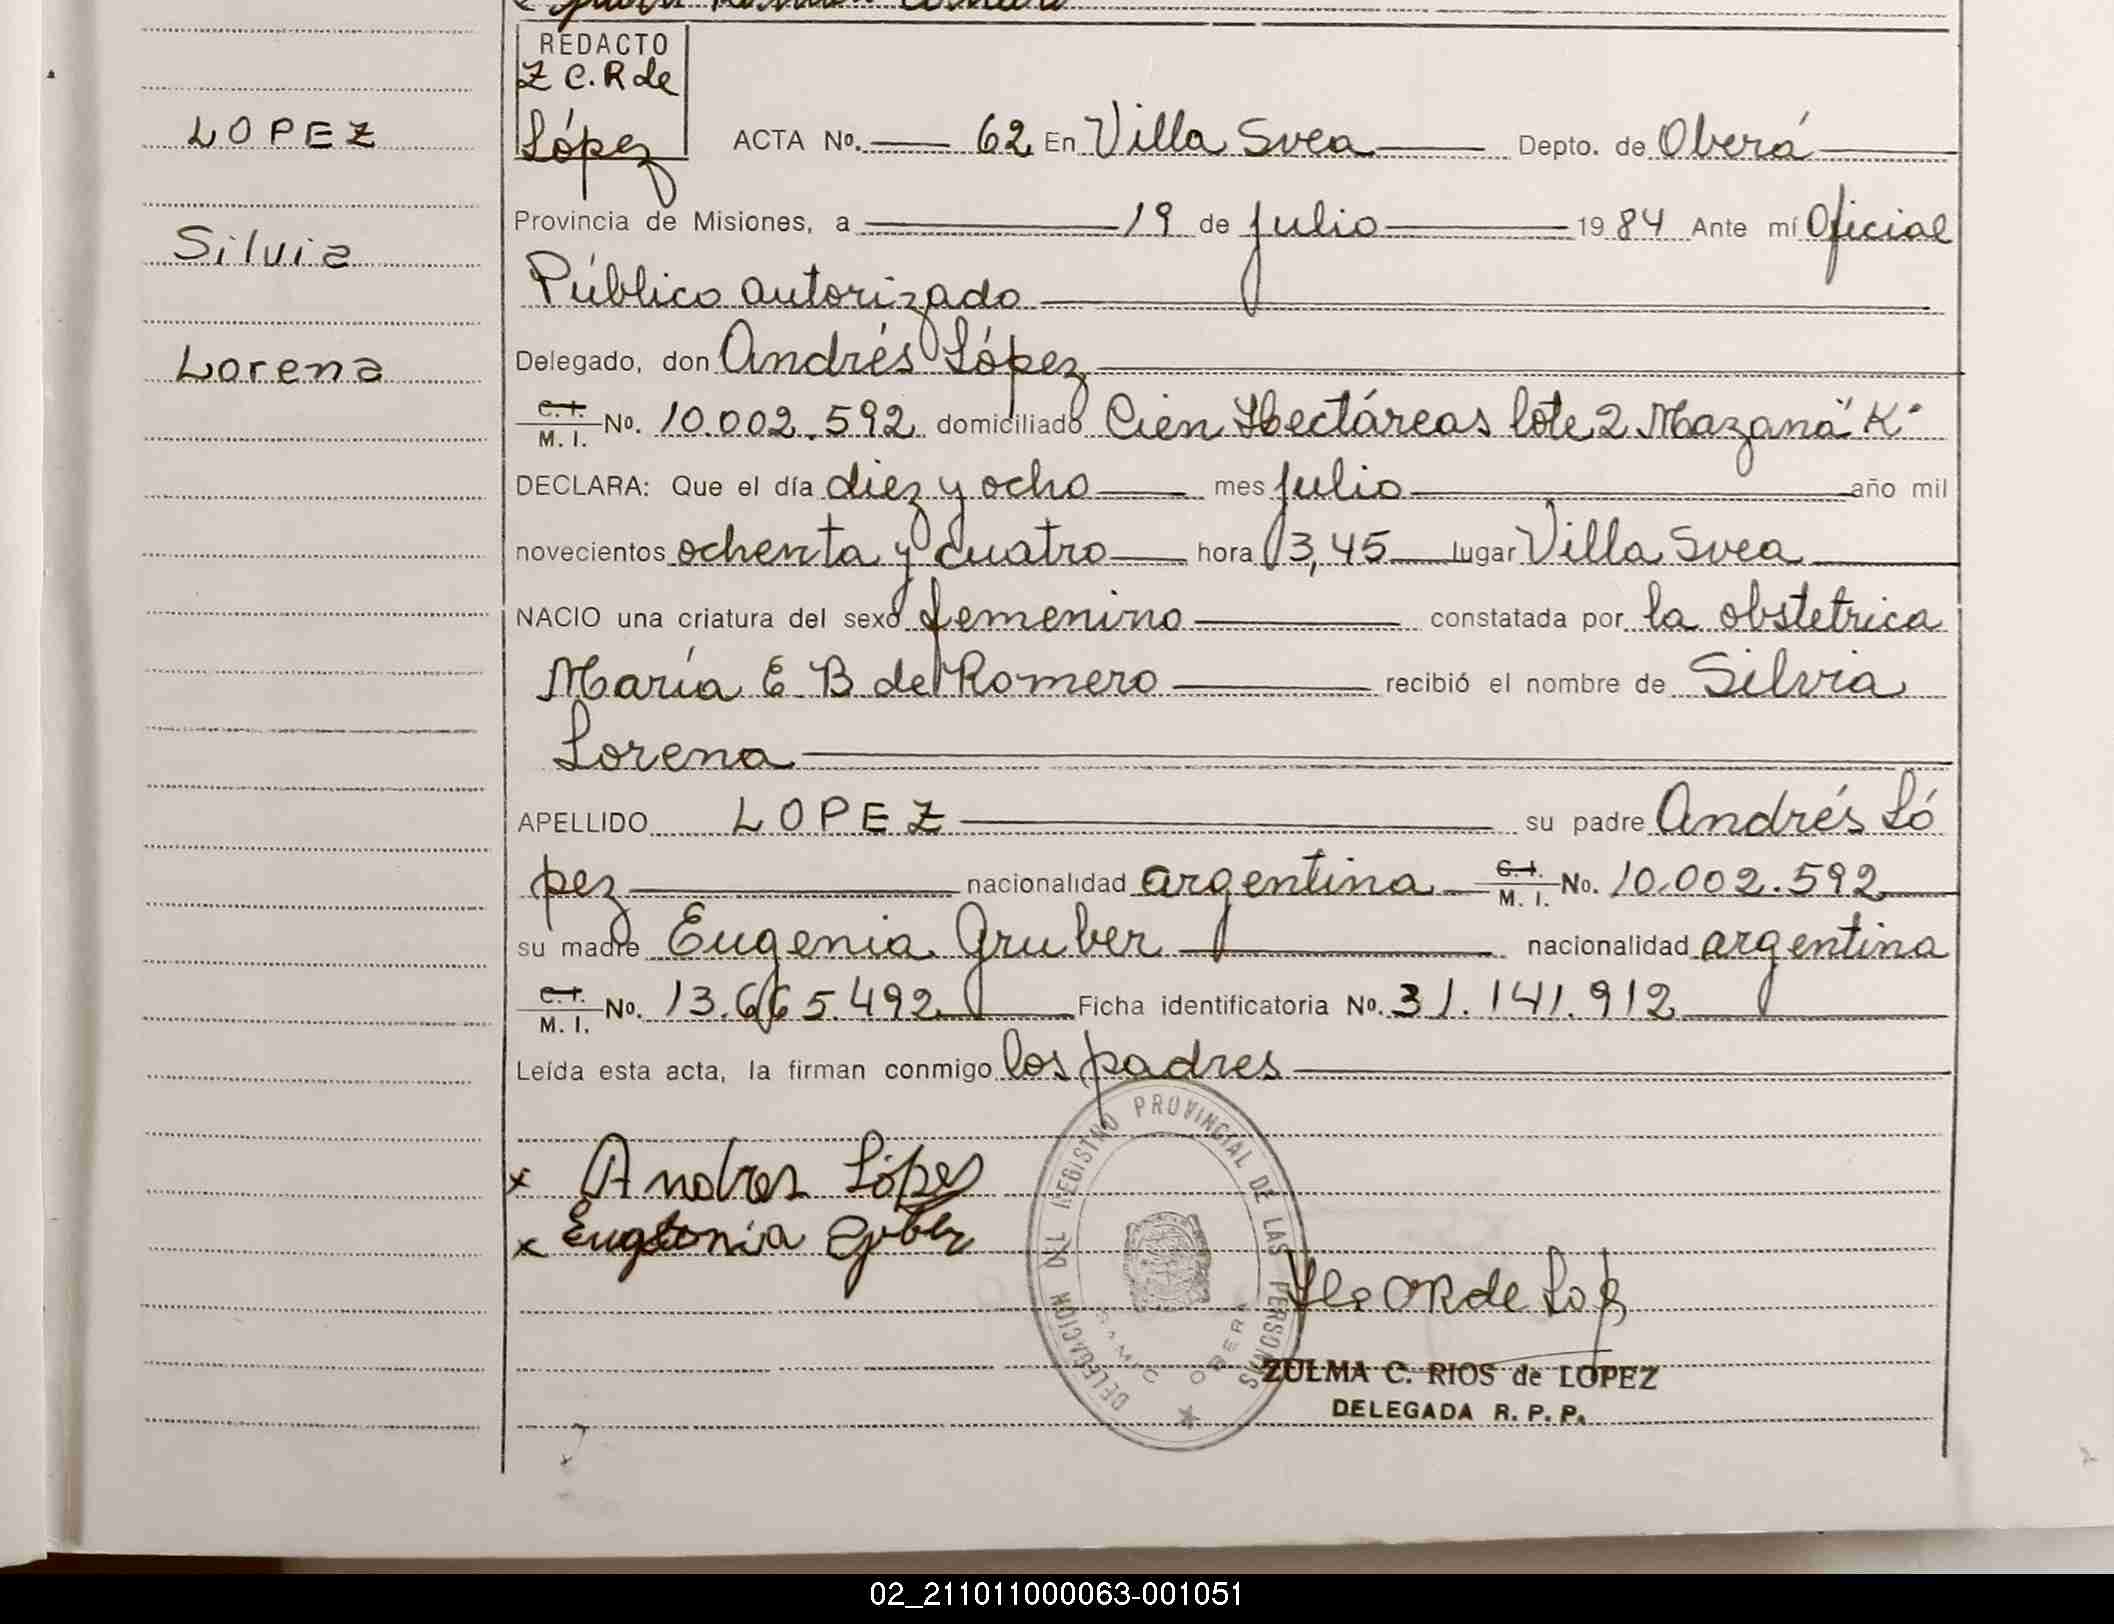 REDACTO
Z C. R de
López
LOPEZ
Silvia
Lorena
ACTA No. 62 En Villa Svea Depto. de Oberá
Provincia de Misiones, a 19 de julio 1984 Ante mí Oficial
Público autorizado
Delegado, don Andrés López
C. I. M. I. No. 10.002.592 domiciliado Cien Hectáreas lote 2 Mazana "K"
DECLARA: Que el día diez y ocho mes julio año mil
novecientos ochenta y cuatro hora 13,45 lugar Villa Svea
NACIO una criatura del sexo femenino constatada por la obstetrica
María E B de Romero recibió el nombre de Silvia
Lorena
APELLIDO LOPEZ su padre Andrés Ló
pez nacionalidad argentina C. I. M. I. No. 10.002.592
su madre Eugenia Gruber nacionalidad argentina
C. I. M. I. No. 13.665.492 Ficha identificatoria No. 31.141.912
Leída esta acta, la firman conmigo los padres
x Andres López
x
DELEGACION DEL REGISTRO PROVINCIAL DE LAS PERSONAS
OBERA
ZULMA C. RIOS de LOPEZ
DELEGADA R. P. P.
02_211011000063-001051